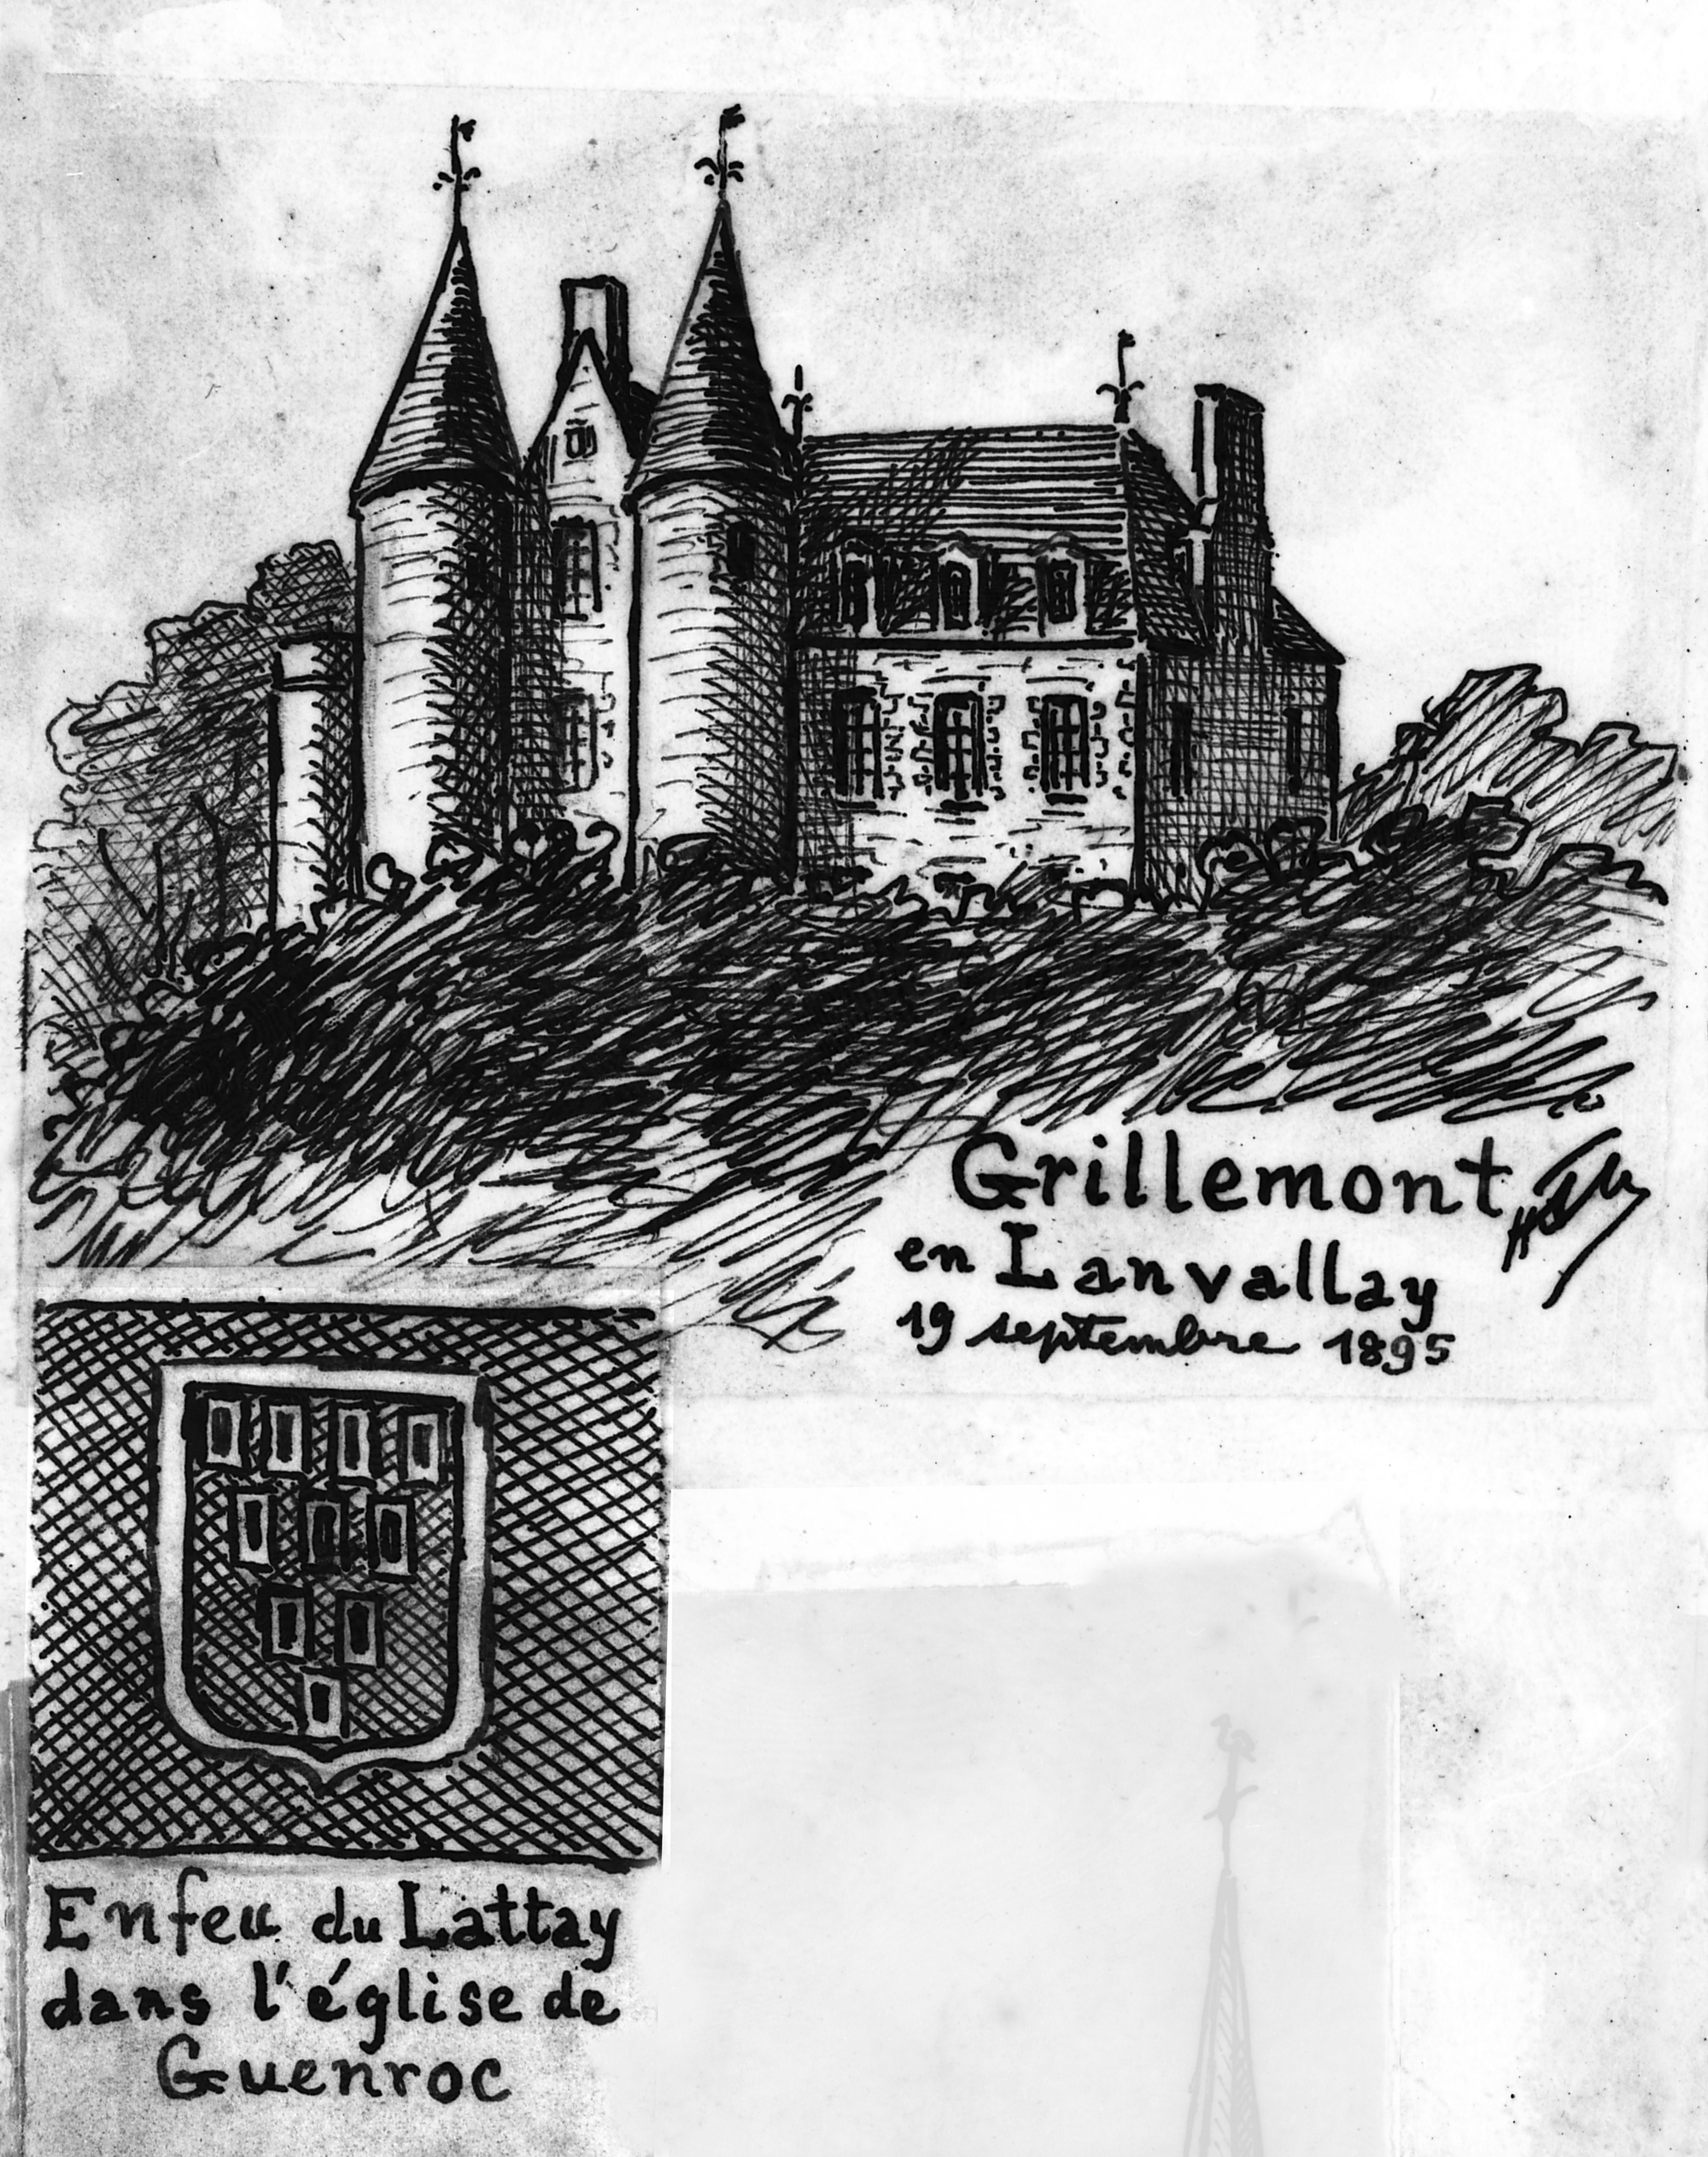 Grillemont
en Lanvallay
19 septembre 1895
Enfeu du Lattay
dans l'église de
Guenroc